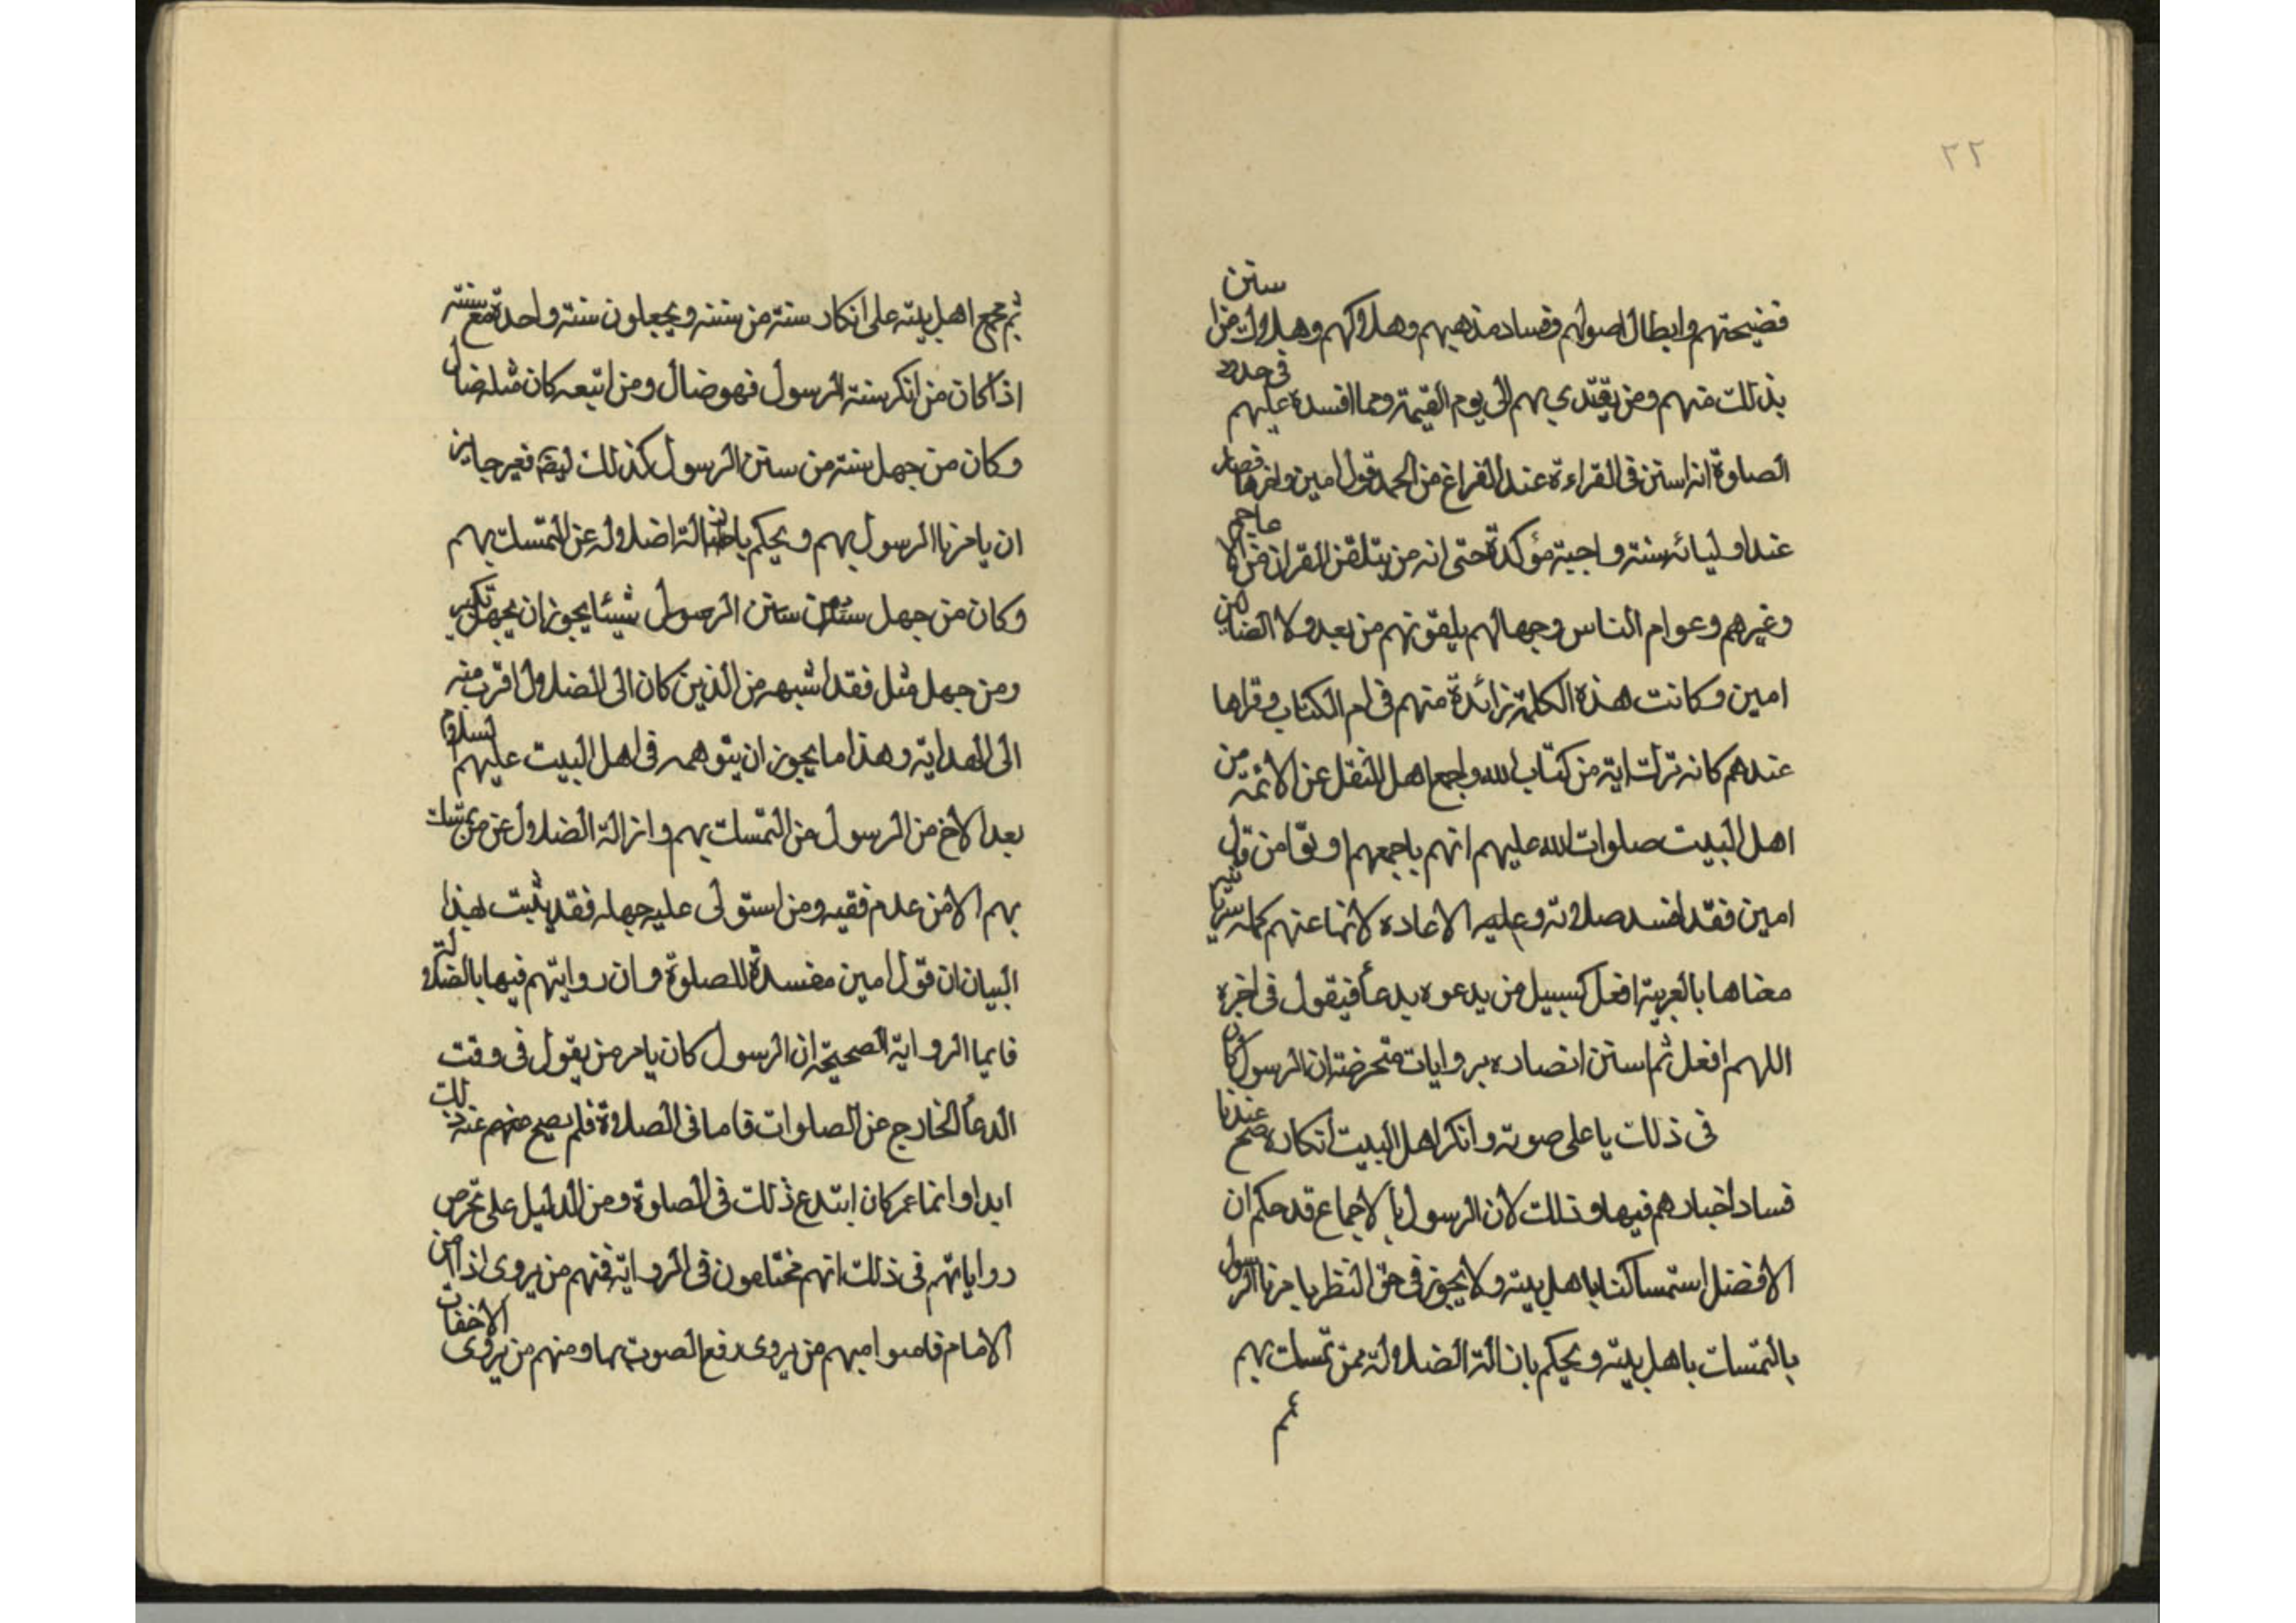 ٢٢
فضيحتهم وابطال اصولهم وفساد مذهبهم وهلاكهم وهلاك من استن
بذلك منهم ومن يقتدي بهم الى يوم القيمة ومما افسده عليهم فى حدود
الصلوة انه استن فى القراءة عند الفراغ من الحمد قول امين واخرها فصار
عند اوليائه سنة واجبة مؤكدة حتى انه من يتلقن القران من الاعاجم
وغيرهم وعوام الناس وجهالهم يلقونهم من بعد ولا الضالين
امين وكانت هذه الكلمة زائدة منهم فى ام الكتاب وقراها
عندهم كانه ترك اية من كتاب الله واجمع اهل النقل عن الائمة من
اهل البيت صلوات الله عليهم انهم باجمعهم من قال
امين فقد افسد صلاته وعليه الاعاده لانها عنهم كلمه سريانية
معناها بالعربية افعل كسبيل من يدعوه بدعأ فيقول فى اخره
اللهم افعل ثم استن انصاده بروايات متخرضة ان الرسول كان
فى ذلك ياعلى صوته وانكر اهل البيت انكاره صح عندنا
فساد اخبارهم فيها وذلك لان الرسول بالاجماع قد حكم ان
الافضل استمساكنا باهل بيته ولا يجوز فى حق النظر يامرنا الرسول
بالتمسك باهل بيته ويحكم بازالة الضلالة ممن تمسك بهم
ثم
ثم يجمع اهل بيته على انكار سنة من سننه ويجعلون سنة واحدة مع سنته
اذا كان من انكر سنة الرسول فهو ضال ومن اتبعه كان مثله ضال
وكان من جهل سنة من سنن الرسول كذلك ايضا فغير جايز
ان يامرنا الرسول بهم ويحكم باضالة اضلاله عن المتمسك بهم
وكان من جهل سنة من سنن الرسول شيئا يجوز ان يجهل تكبير
ومن جهل مثل فقد اشبه من الذين كان الى الضلال اقرب منه
الى الهداية وهذا ما يجوز ان يتوهمه فى اهل البيت عليهم السلام
بعد الاخ من الرسول من التمسك بهم وازالة الضلال عن من تمسك
بهم الا من عدم فقيه ومن استولى عليه جهله فقد يثبت هذا
البيان ان قول امين مفسدة للصلوة وان روايتهم فيها بالضلالة
فايما الرواية الصحيحة ان الرسول كان يامر من يقول فى وقت
الدعأ الخارج عن الصلوات فاما فى الصلاة فلم يصح منهم عنه ذلك
ابدا وانما عمر كان ابتدع ذلك فى الصلوة ومن الدليل على تخرص
رواياتهم فى ذلك انهم مختلفون فى الرواية فمنهم من يروى اذا امن
الامام فامنوا منهم من يروى رفع الصوت بها ومنهم من يروى الاخفات